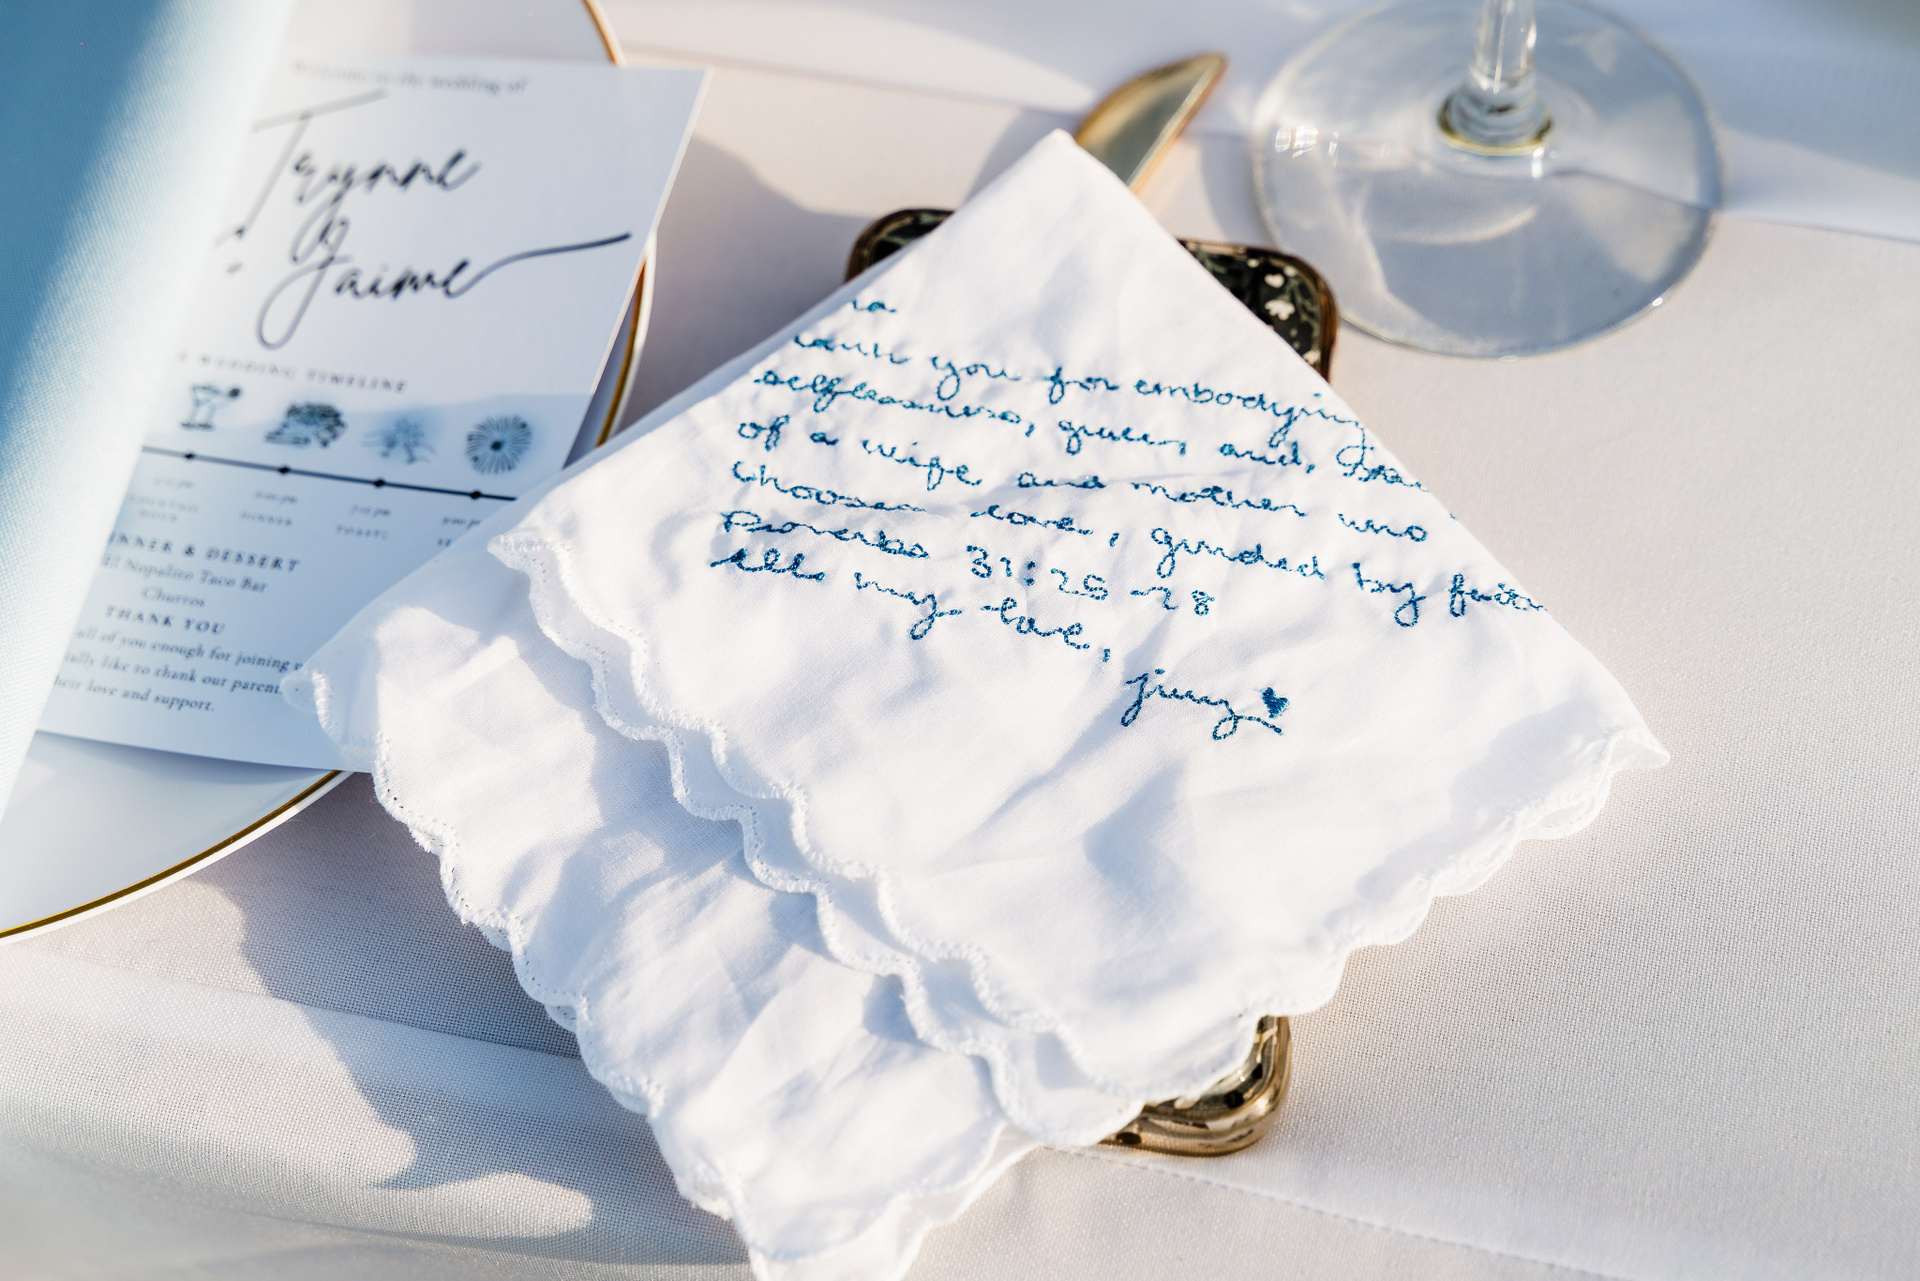 Welcome to the wedding of
Trynne
&
Jaime
WEDDING TIMELINE
DINNER
TOASTS
DINNER & DESSERT
El Nopalito Taco Bar
Churros
THANK YOU
all of you enough for joining
ially like to thank our parent
heir love and support.
you for embodying
selflessness, grace, and,
of a wife and mother who
chooses love, guided by faith
Proverbs 31:25-28
all my love,